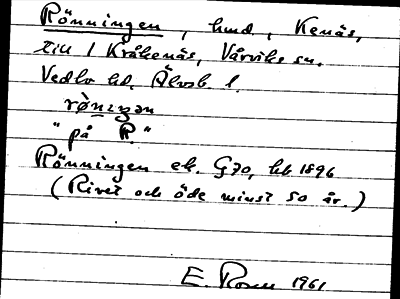 Rönningen, hmd, Kenäs,
till 1 Kråkenäs, Vårviks sn.
Vedbo hd. Älvsb. l.
rø̀nıŋən
"på R."
Rönningen ek. G70, hb 1896
(Rivet och öde minst 50 år.)
E. Rosen 1961